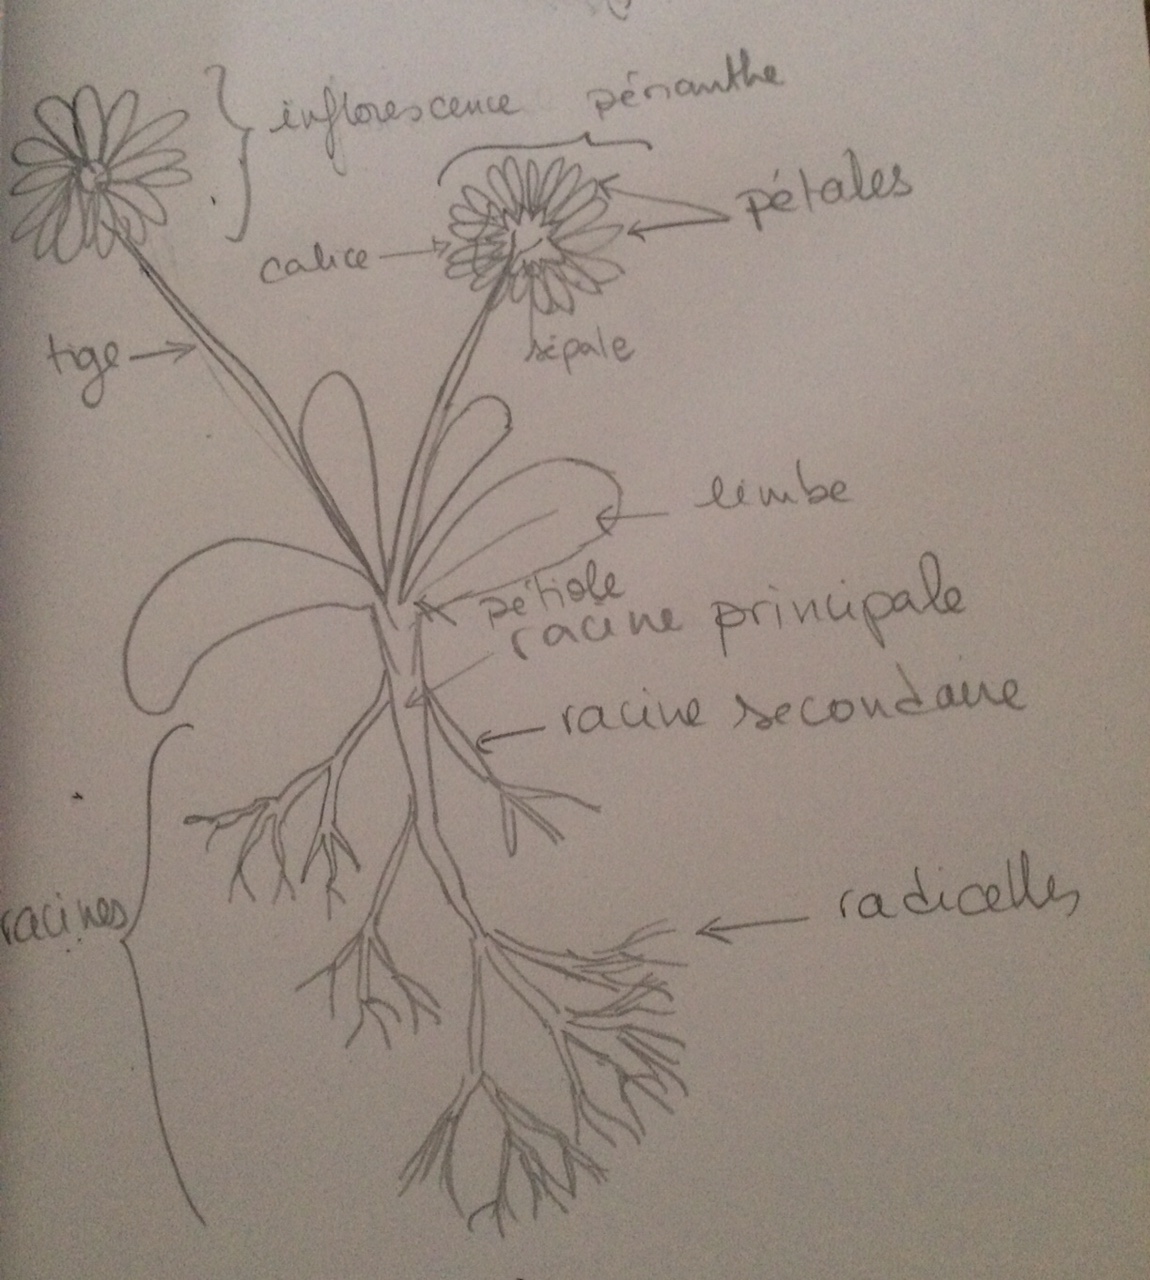 inflorescence
périanthe
pétales
calice
tige
sépale
limbe
pétiole
racine principale
racine secondaire
racines
radicelles